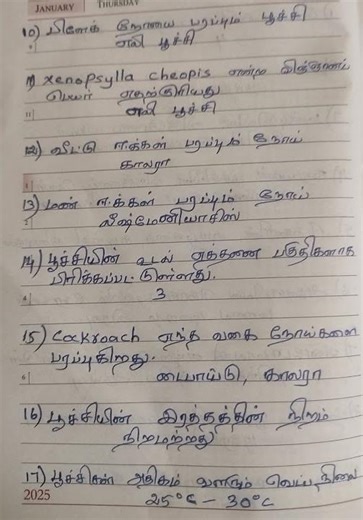 JANUARY THURSDAY
10) பிளேக் நோயை பரப்பும் பூச்சி
எலி பூச்சி
11) xenopsylla cheopis என்ற விஞ்ஞானப்
பெயர் எதற்குரியது
எலி பூச்சி
12) வீட்டு ஈக்கள் பரப்பும் நோய்
காலரா
13) மண் ஈக்கள் பரப்பும் நோய்
லீஷ்மேனியாசிஸ்
14) பூச்சியின் உடல் எத்தனை பகுதிகளாக
பிரிக்கப்பட்டுள்ளது.
3
15) Cockroach எந்த வகை நோய்களை
பரப்புகிறது.
டைபாய்டு, காலரா
16) பூச்சியின் இரத்தத்தின் நிறம்
நிறமற்றது
17) பூச்சிகள் அதிகம் வளரும் வெப்ப நிலை
2025 25°C - 30°C